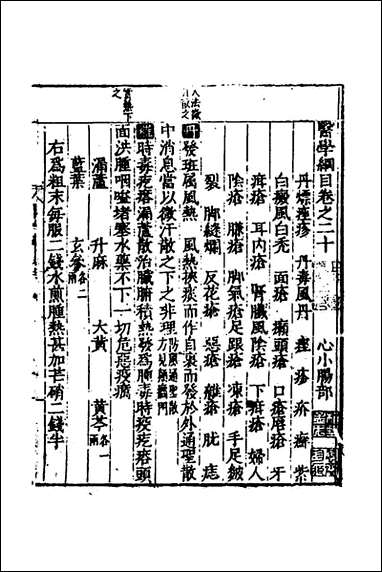 醫學綱目卷之二十 心小腸部
丹熛痤疹 丹毒風丹 痤 疹 疥 癬 紫
白癜風白禿 面瘡 癩頭瘡 口瘡唇瘡 牙
疳瘡 耳內瘡 腎臟風陰瘡 下疳瘡 婦人
陰瘡 臁瘡 脚氣瘡足跟瘡 凍瘡 手足皴
裂 脚縫爛 反花瘡 惡瘡 雜瘡 肬 痣
丹發班屬風熱 風熱挾痰而作自裏而發於外通聖散
中消息當以微汗散之下之非理防風通聖散方見痢風門
時毒疙瘩漏蘆散治臟腑積熱發為腫毒時疫疙瘩頭
面洪腫咽嗌堵塞水藥不下一切危惡疫癘
漏蘆 升麻 大黃 黃芩各一兩
藍葉 玄參各二兩
右為粗末每服二錢水煎腫熱甚加芒硝二錢半